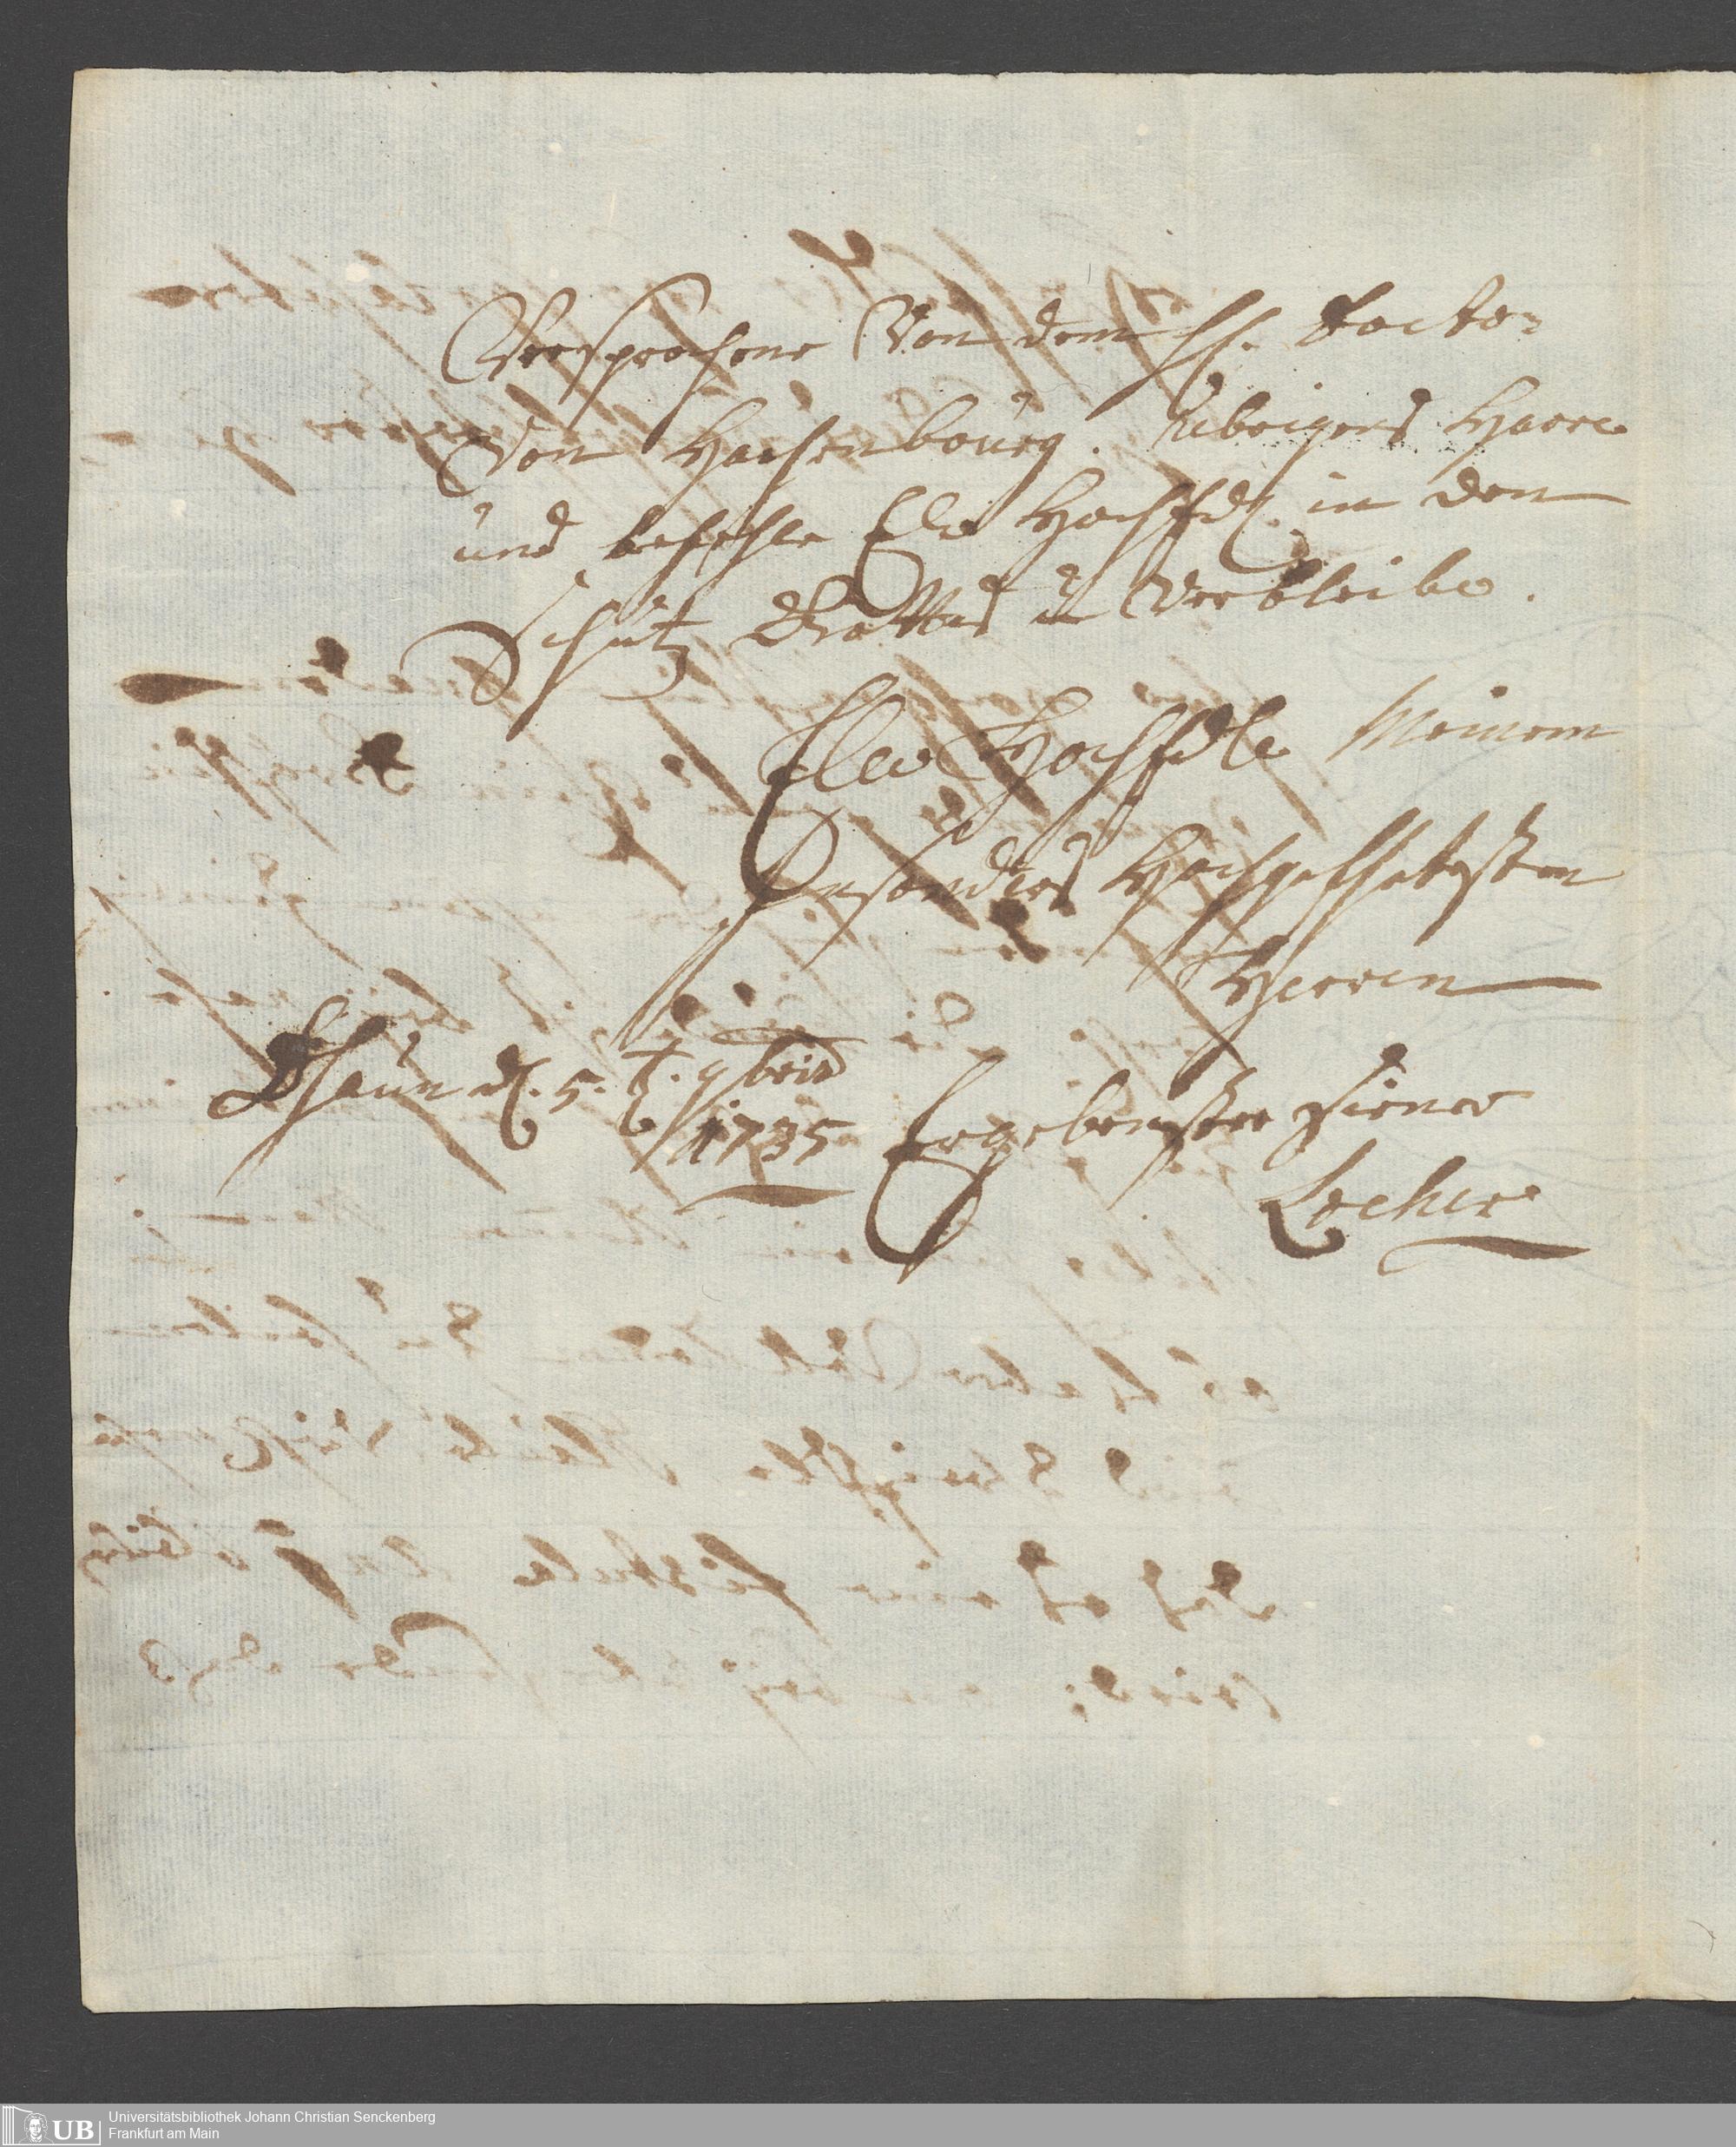 Versprochene Von dem H. Doctor
Von Hachenbourg. Uebrigens Harre
und befehle Ew HochEdl. in den
Schutz Gottes u Verbleibe.
Ew HochEdle Meinem
besonders Hochgeehrtesten
Herren
Dhaun d. 5. t. 9bris
1735
Ergebenster Diener
Locher
UB
Universitätsbibliothek Johann Christian Senckenberg
Frankfurt am Main